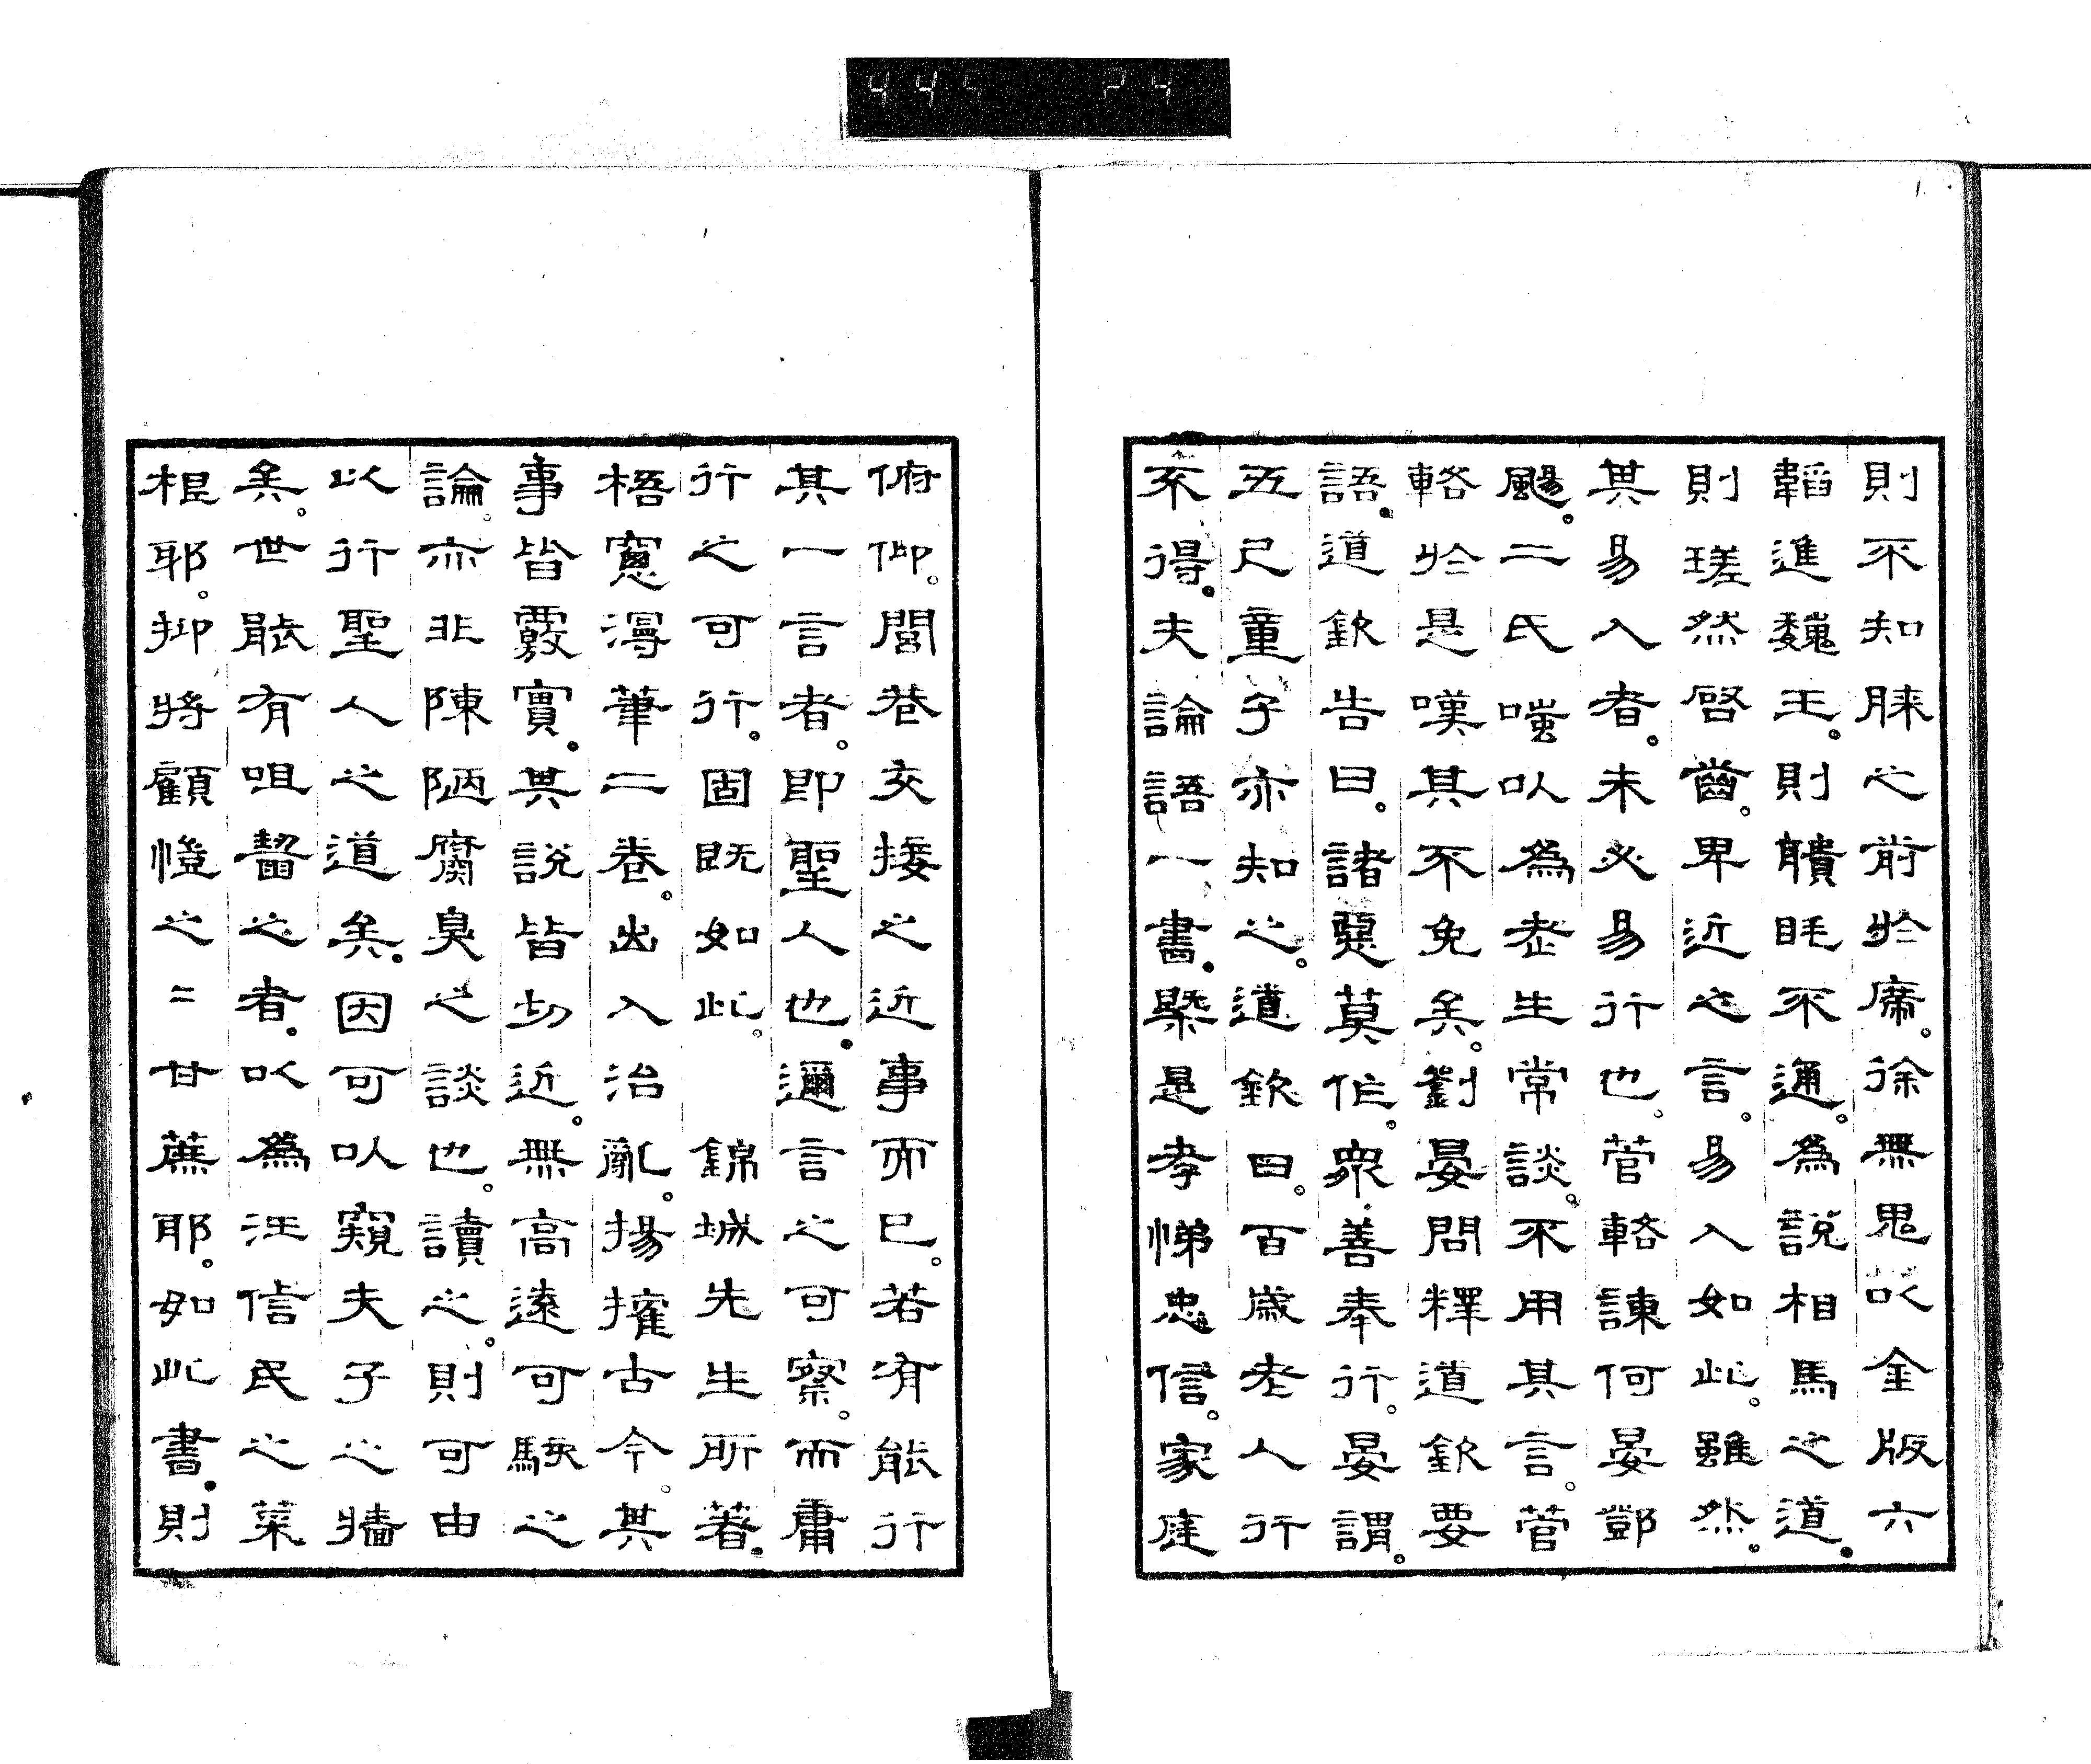 則不知膝之前於席。徐無鬼以金版六
韜進魏王。則聵眊不通。為說相馬之道。
則瑳然啓齒。卑近之言。易入如此。雖然。
其易入者。未必易行也。菅輅諫何晏鄧
颺。二氏嗤以為老生常談。不用其言。菅
輅於是嘆其不免矣。劉晏問釋道欽要
語。道欽告曰。諸惡莫作。衆善奉行。晏謂。
五尺童子亦知之。道欽曰。百歲老人行
不得。夫論語一書。槩是孝悌忠信。家庭
俯仰。閭巷交接之近事而已。若有能行
其一言者。即聖人也。邇言之可察。而庸
行之可行。固既如此。錦城先生所著。
梧窻漫筆二卷。出入治亂。揚搉古今。其
事皆覈實。其說皆切近。無高遠可駭之
論。亦非陳陋腐臭之談也。讀之。則可由
以行聖人之道矣。因可以窺夫子之牆
矣。世能有咀嚼之者。以為汪信民之菜
根耶。抑將顧愷之之甘蔗耶。如此書。則